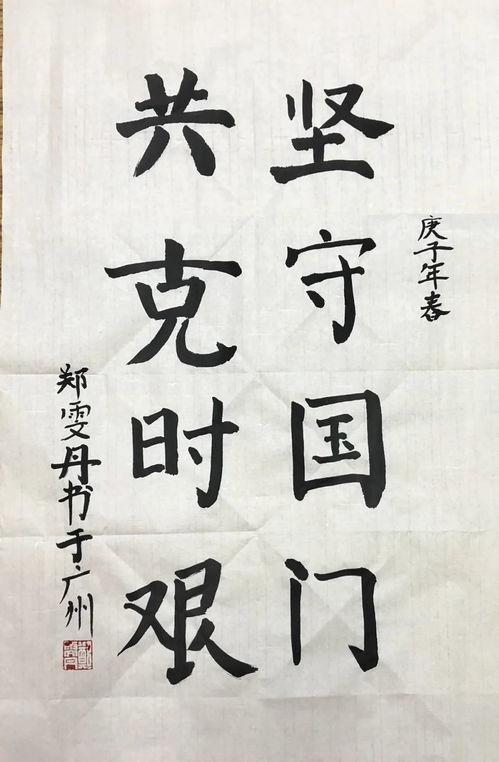 庚子年春
坚守国门
共克时艰
郑雯丹书于广州